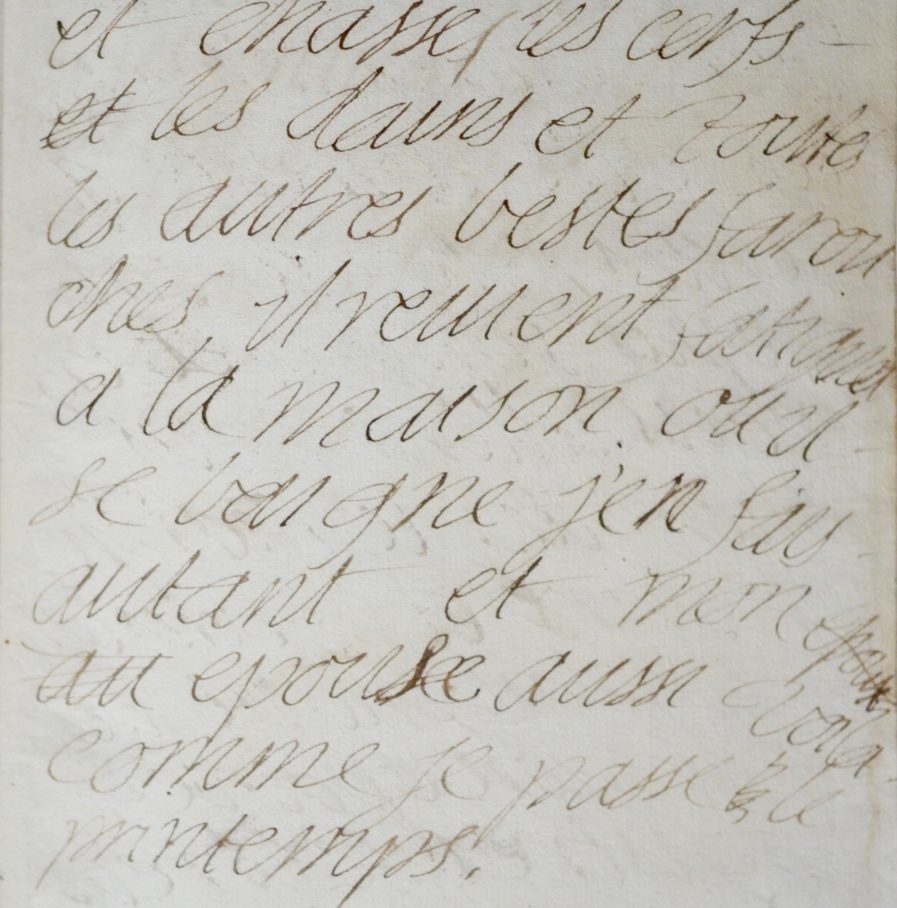 et chasse les cerfs
et les dains et toutes
les autres bestes farou
ches, il reuient fatigué
a la maison ou il
se baigne j'en fais
autant et mon
epouse aussi voila
comme je passe le
printemps.